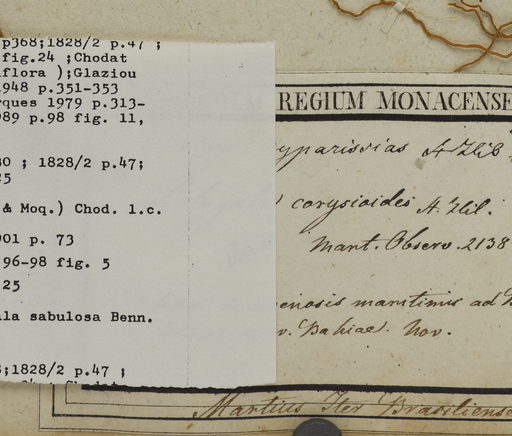 p368;1828/2 p.47 ;
fig.24 ;Chodat
flora );Glaziou
948 p.351-353
rques 1979 p.313-
989 p.98 fig. 11,
0 ; 1828/2 p.47;
25
& Moq.) Chod. l.c.
901 p. 73
96-98 fig. 5
25
la sabulosa Benn.
;1828/2 p.47 ;
REGIUM MONACENSE
yparissias A. St Hil
corysioides A. St Hil.
Mart. Observ. 2138
ensis maritimis ad
v. Bahiae. Nov.
Martius Iter Brasiliense